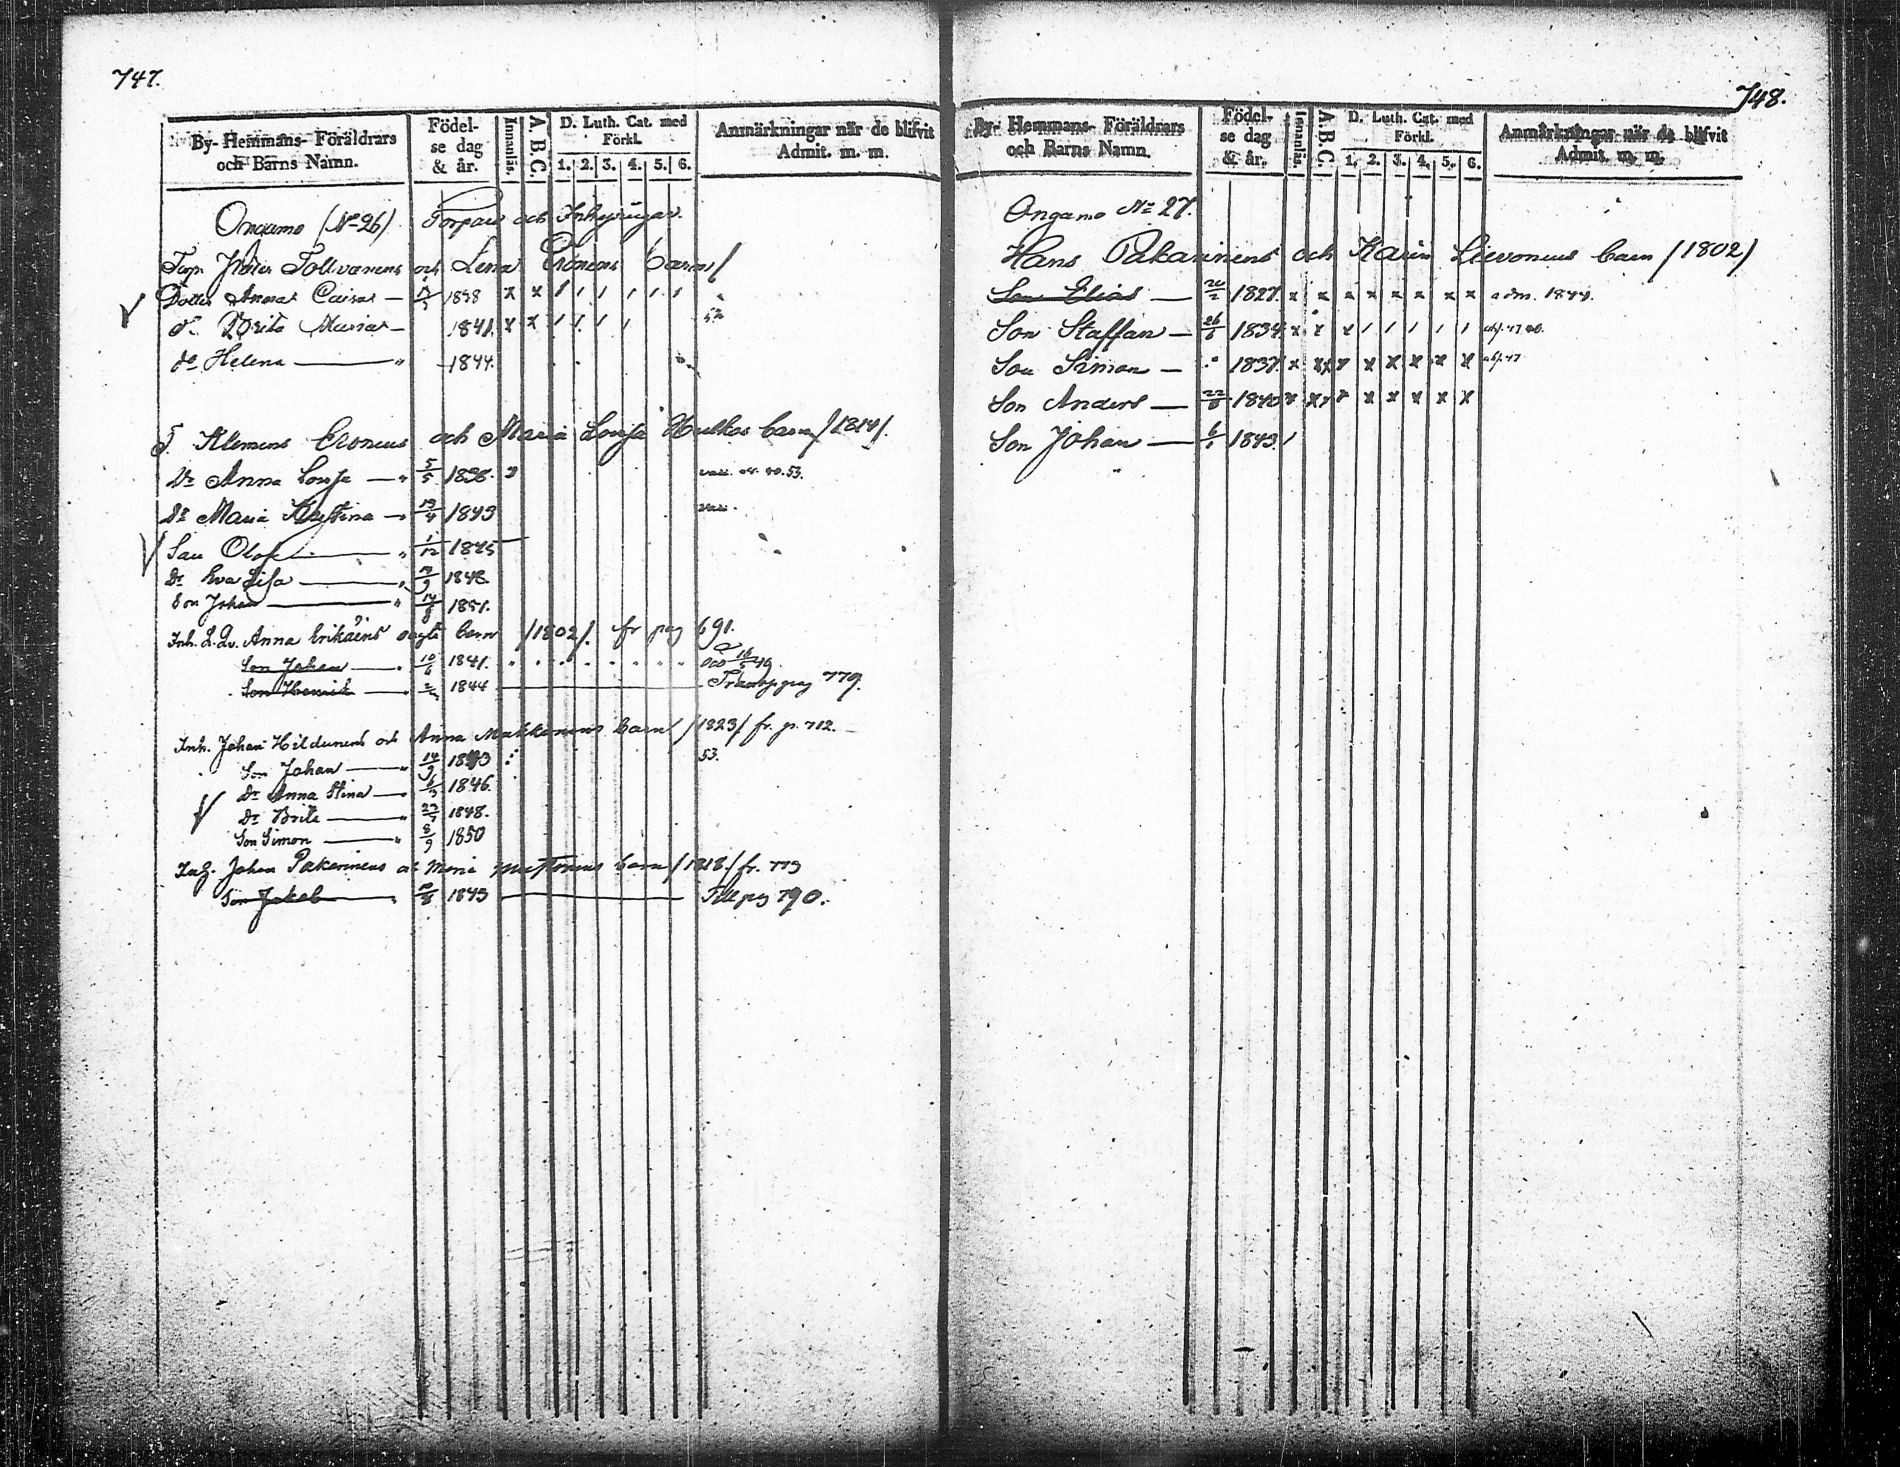 747.
By- Hemmans- Föräldrars och Barns Namn.
Födelse dag & år.
Innanläs.
A.B.C.
D. Luth. Cat. med Förkl.
1. 2. 3. 4. 5. 6.
Anmärkningar när de blifvit Admit. m. m.
Ongamo (No 26) Torpare och
Torp. Tolvanens och Lena Eronens barn/
Dotter Anna Caisa — 1838 x x
do Brita Maria — 1841. x x 52
do Helena — " 1844.
T. Klemens Eronens och Maria Lovisa Hulkos barn /1814/.
Dr Anna Lovisa — " 5/5 1838.
Dr Maria Kristina — " 1843
Son Olof — " 1/12 1845
Dr Eva Lisa — " 1848
Son Johan — " 1851.
Inh. Anna oägta barn /1802/. fr pag 691.
Son Johan — " 10/6 1841.
Son Henrik — " 1844 — pag 779.
Inh. Johan Hildunens och Anna barn /1823/ fr. p. 712.
Son Johan — " 14/9 1843 53.
Dr Anna Stina — " 1846.
Dr Brita — " 1848.
Son Simon — " 8/9 1850
Inh. Johan Pakarinens och Maria barn /1818/ fr. 773
Son Jakob — " 1843 — Till pag 790.
748.
By- Hemmans- Föräldrars och Barns Namn.
Födelse dag & år.
Innanläs.
A.B.C.
D. Luth. Cat. med Förkl.
1. 2. 3. 4. 5. 6.
Anmärkningar när de blifvit Admit. m. m.
Ongamo No 27.
Hans Pakarinens och Karin Lievonens barn /1802/
Son Elias — 1827. x x x x x x x x adm. 1844.
Son Staffan — 26/6 1834 x x x / / / / /
Son Simon — 1837. x xx x x x x x
Son Anders — 1840 x x x x x x x
Son Johan — 1843 /